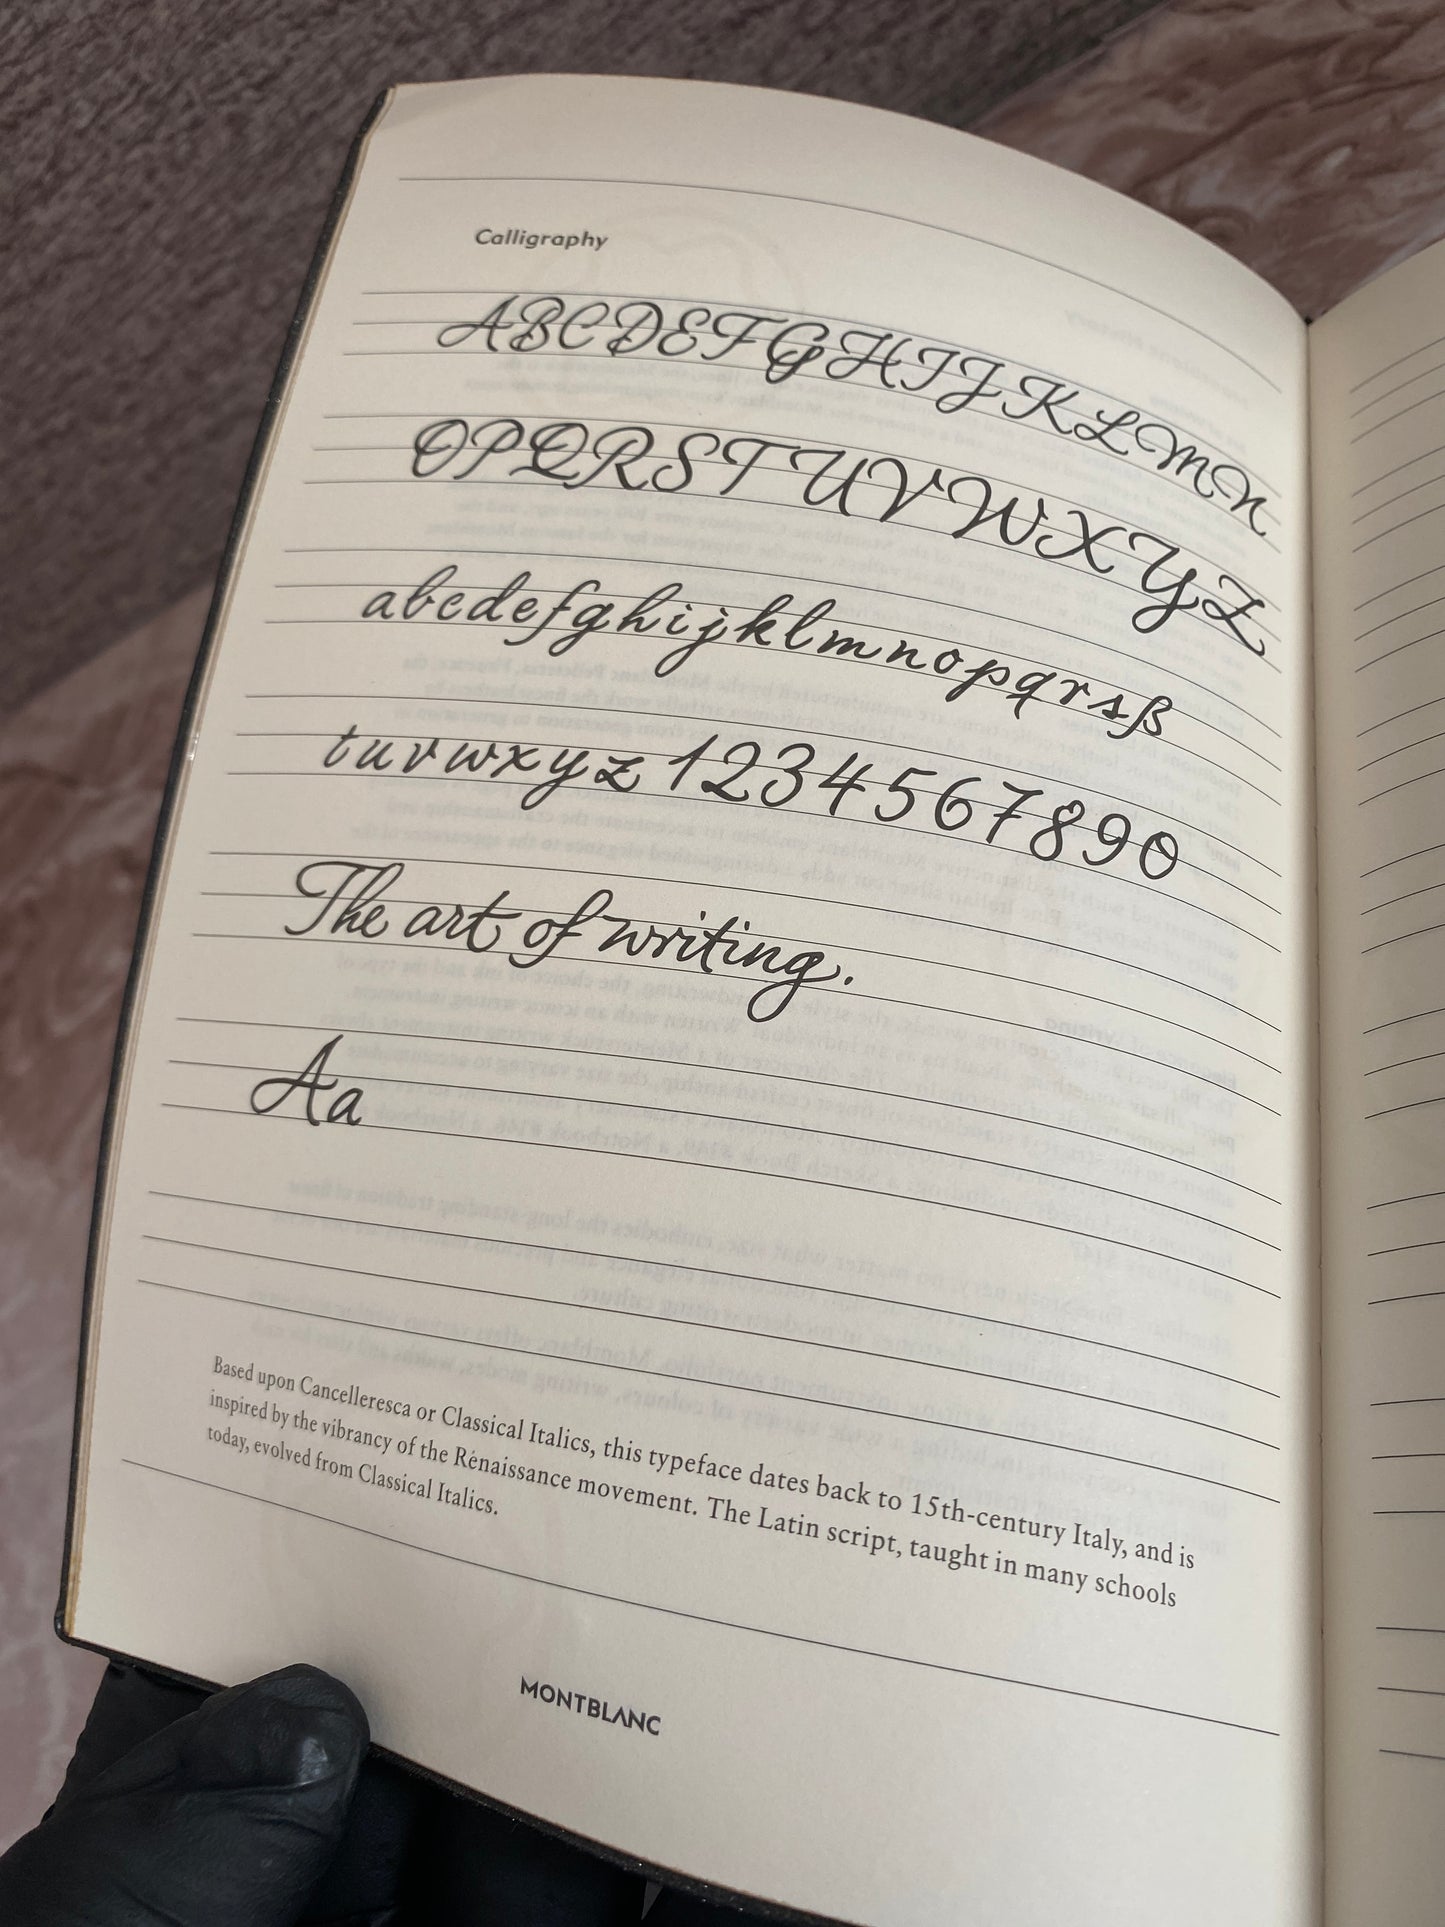 Calligraphy
ABCDEFGHIJKLMN
OPQRSTUVWXYZ
abcdefghijklmnopqrsß
tuvwxyz 1234567890
The art of writing.
Aa
Based upon Cancelleresca or Classical Italics, this typeface dates back to 15th-century Italy, and is
inspired by the vibrancy of the Rénaissance movement. The Latin script, taught in many schools
today, evolved from Classical Italics.
MONTBLANC